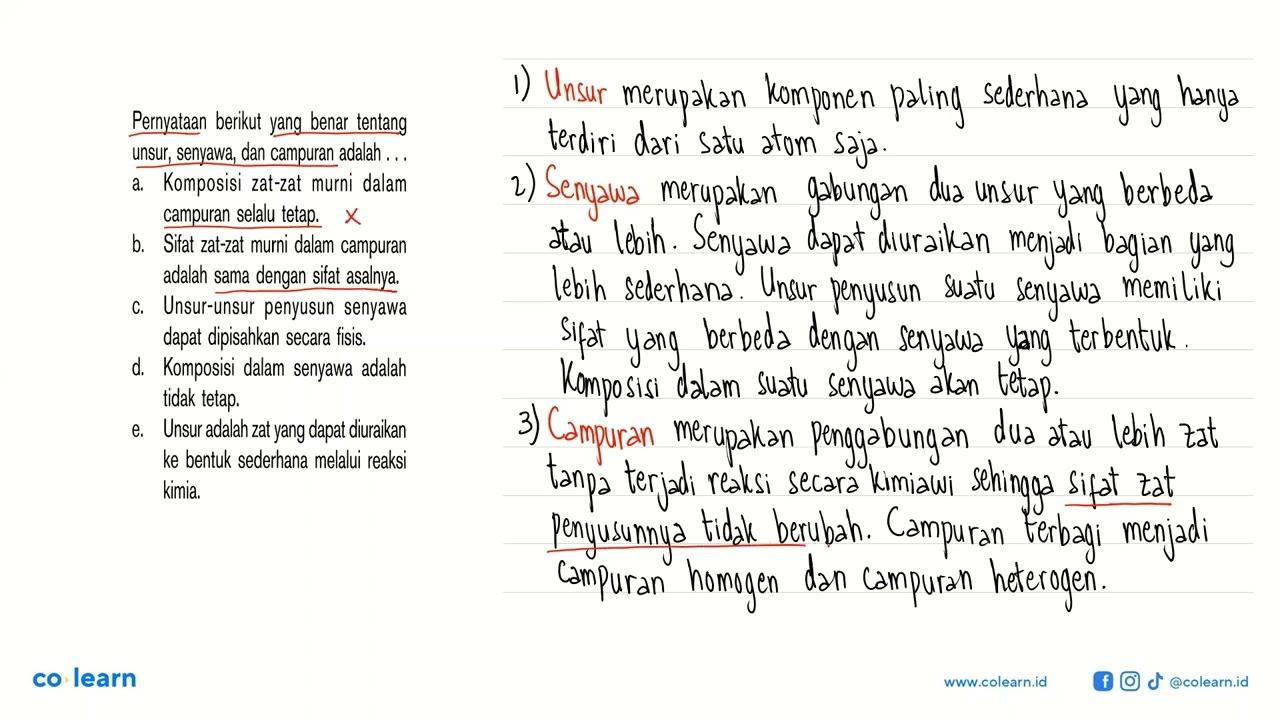 Pernyataan berikut yang benar tentang
unsur, senyawa, dan campuran adalah . . .
a. Komposisi zat-zat murni dalam
campuran selalu tetap. X
b. Sifat zat-zat murni dalam campuran
adalah sama dengan sifat asalnya.
c. Unsur-unsur penyusun senyawa
dapat dipisahkan secara fisis.
d. Komposisi dalam senyawa adalah
tidak tetap.
e. Unsur adalah zat yang dapat diuraikan
ke bentuk sederhana melalui reaksi
kimia.
1) Unsur merupakan komponen paling sederhana yang hanya
terdiri dari satu atom saja.
2) Senyawa merupakan gabungan dua unsur yang berbeda
atau lebih. Senyawa dapat diuraikan menjadi bagian yang
lebih sederhana. Unsur penyusun suatu senyawa memiliki
sifat yang berbeda dengan senyawa yang terbentuk.
Komposisi dalam suatu senyawa akan tetap.
3) Campuran merupakan penggabungan dua atau lebih zat
tanpa terjadi reaksi secara kimiawi sehingga sifat zat
penyusunnya tidak berubah. Campuran terbagi menjadi
campuran homogen dan campuran heterogen.
co learn
www.colearn.id
@colearn.id